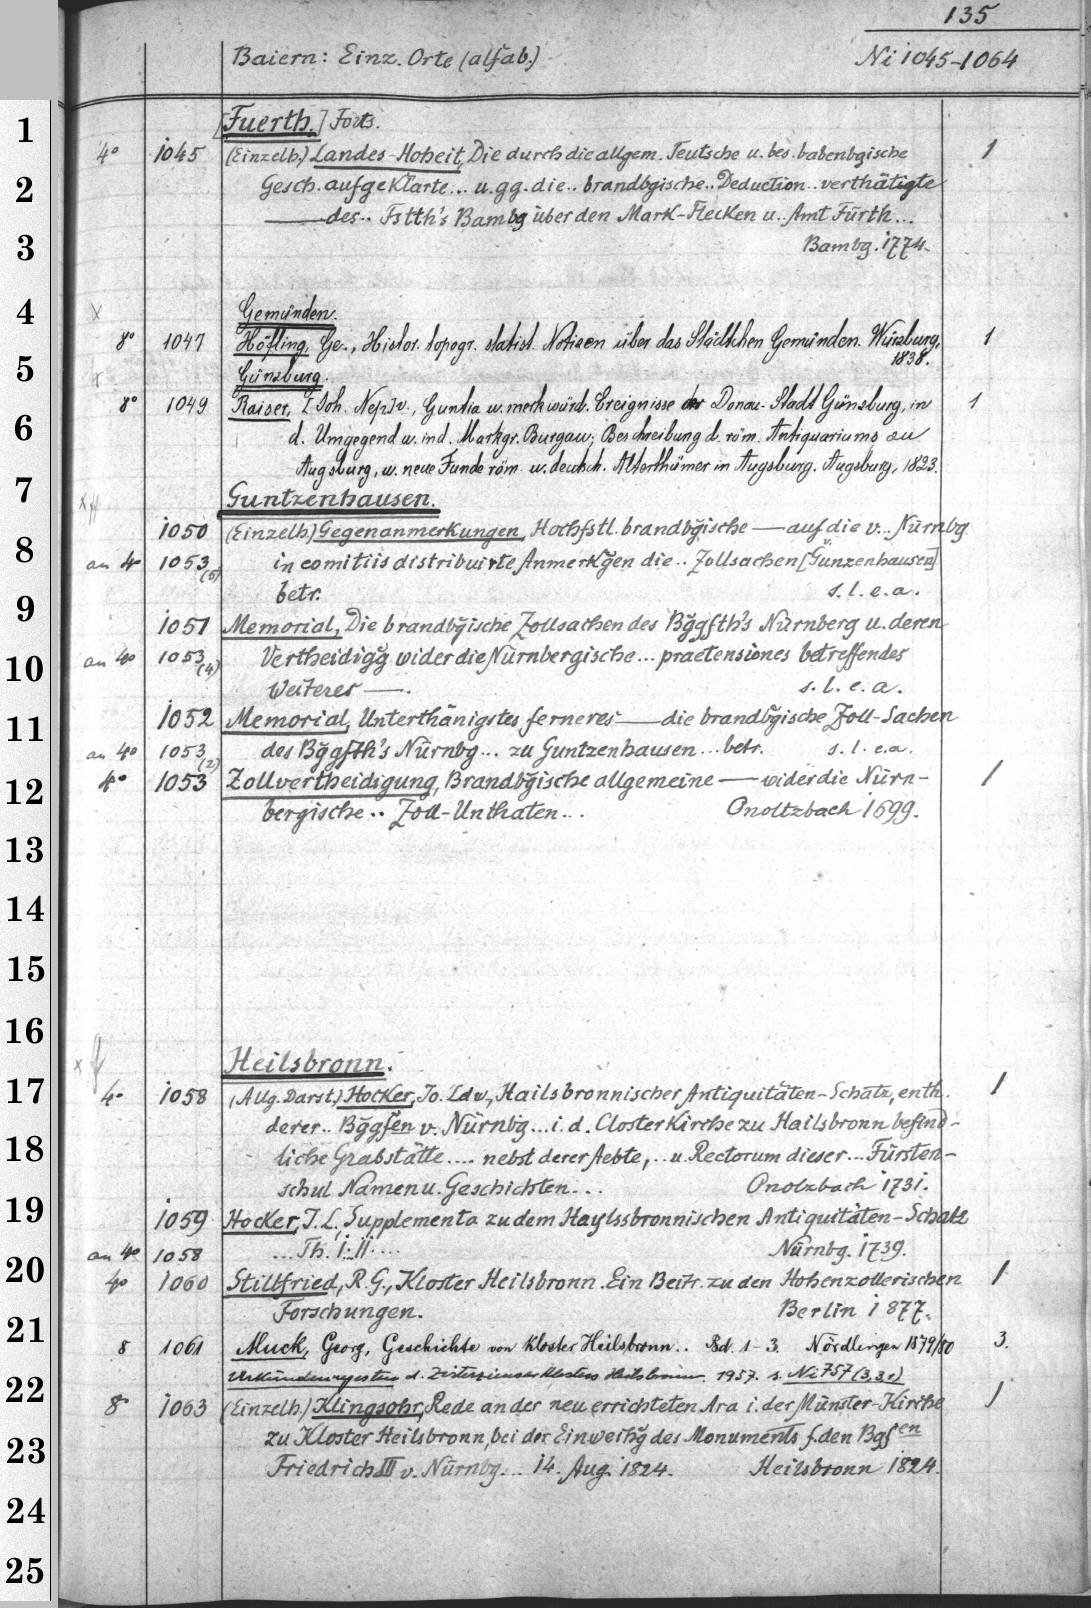 135
Baiern: Einz. Orte (alfab.) Ni 1045-1064
[Fuerth.] Forts.
4° 1045 (Einzelh.) Landes-Hoheit, Die durch die allgem. Teutsche u. bes. babenbgische 1
Gesch. aufgeklärte... u. gg. die.. brandbgische.. Deduction.. verthätigte
—— des.. Fstth's Bambg über den Mark-Flecken u. Amt Fürth...
Bambg. 1774.
x Gemünden.
8° 1047 Höfling, Ge., Histor. topogr. statist. Notizen über das Städtchen Gemünden. Würzburg, 1
1838.
Günzburg.
8° 1049 Raiser, [Joh. Nep.] v., Guntia u. merkwürd. Ereignisse der Donau-Stadt Günzburg, in 1
d. Umgegend u. in d. Markgr. Burgau; Beschreibung d. röm. Antiquariums zu
Augsburg, u. neue Funde röm. u. deutsch. Alterthümer in Augsburg. Augsburg, 1823.
Guntzenhausen.
1050 (Einzelh.) Gegenanmerkungen, Hochfstl. brandbg̃ische —— auf die v... Nürnbg
an 4° 1053 (5) in comitiis distribuirte Anmerkg̃en die.. Zollsachen [Günzenhausen]
betr. s. l. e. a.
1051 Memorial, Die brandbg̃ische Zollsachen des Bg̃gfth's Nürnberg u. deren
an 4° 1053 (4) Vertheidigg̃ wider die Nürnbergische... praetensiones betreffendes
weiteres ——. s. l. e. a.
1052 Memorial, Unterthänigstes ferneres —— die brandbg̃ische Zoll-Sachen
an 4° 1053 (2) des Bg̃gfth's Nürnbg... zu Guntzenhausen... betr. s. l. e. a.
4° 1053 Zollvertheidigung, Brandbg̃ische allgemeine —— wider die Nürn- 1
bergische.. Zoll-Unthaten... Onoltzbach 1699.
x Heilsbronn.
4° 1058 (Allg. Darst.) Hocker, Jo. Ldw., Hailsbronnischer Antiquitäten-Schatz, enth. 1
derer.. Bg̃gfen v. Nürnbg... i. d. Closter Kirche zu Hailsbronn befind-
liche Grabstätte.... nebst derer Aebte,.. u. Rectorum dieser... Fürsten-
schul Namen u. Geschichten... Onolzbach 1731.
1059 Hocker, J. L., Supplementa zu dem Haylssbronnischen Antiquitäten-Schatz
an 4° 1058 ... Th. I. II.... Nürnbg. 1739.
4° 1060 Stillfried, R. G., Kloster Heilsbronn. Ein Beitr. zu den Hohenzollerischen 1
Forschungen. Berlin 1877.
8 1061 Muck, Georg, Geschichte von Kloster Heilsbronn.. Bd. 1-3. Nördlingen 1879/80 3.
Urkundenregesten d. Zisterzienserklosters Heilsbronn. 1957. s. Ni 757 (3,3e)
8° 1063 (Einzelh.) Klingsohr, Rede an der neu errichteten Ara i. der Münster-Kirche 1
zu Kloster Heilsbronn, bei der Einweihg̃ des Monuments f. den Bgfen
Friedrich III v. Nürnbg... 14. Aug. 1824. Heilsbronn 1824.
1
2
3
4
5
6
7
8
9
10
11
12
13
14
15
16
17
18
19
20
21
22
23
24
25